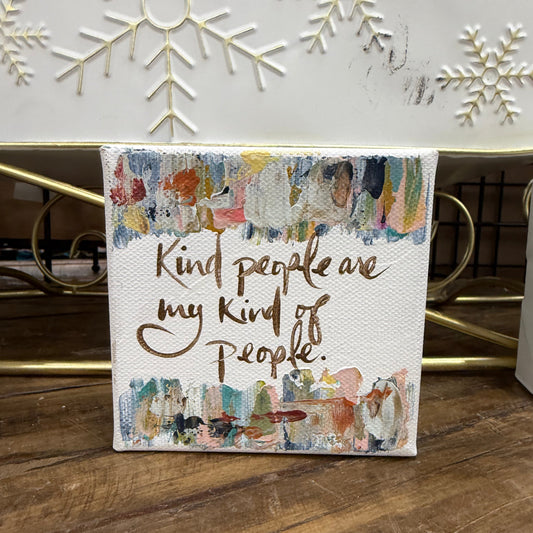 Kind people are
my kind of
people.